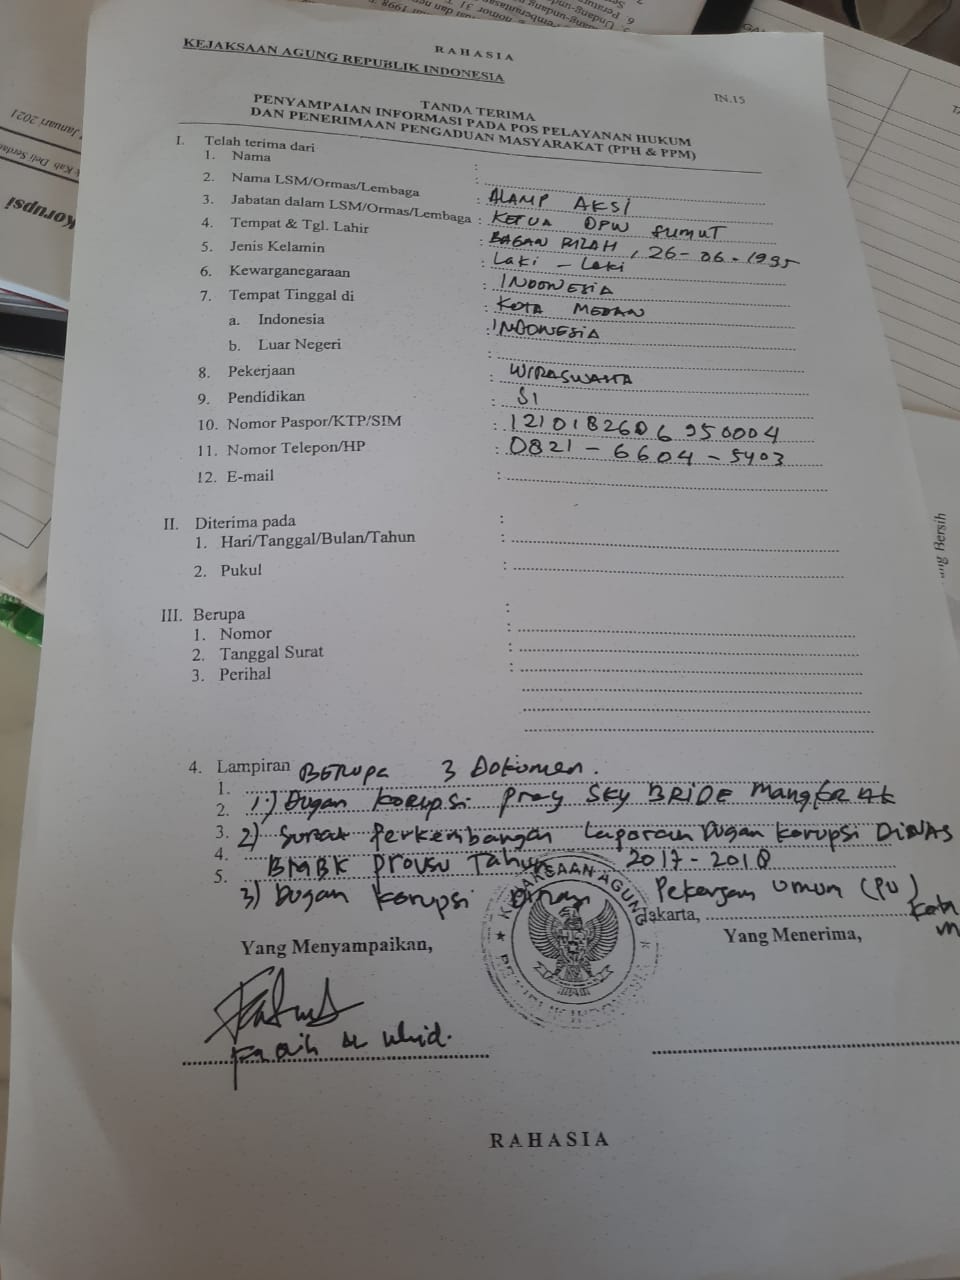 RAHASIA
KEJAKSAAN AGUNG REPUBLIK INDONESIA
IN.15
TANDA TERIMA
PENYAMPAIAN INFORMASI PADA POS PELAYANAN HUKUM
DAN PENERIMAAN PENGADUAN MASYARAKAT (PPH & PPM)
I. Telah terima dari :
1. Nama :
2. Nama LSM/Ormas/Lembaga : ALAMP AKSI
3. Jabatan dalam LSM/Ormas/Lembaga : KETUA DPW SUMUT
4. Tempat & Tgl. Lahir : BAGAN BILAH, 26-06-1995
5. Jenis Kelamin : Laki - Laki
6. Kewarganegaraan : INDONESIA
7. Tempat Tinggal di : KOTA MEDAN
a. Indonesia : INDONESIA
b. Luar Negeri :
8. Pekerjaan : WIRASWASTA
9. Pendidikan : S1
10. Nomor Paspor/KTP/SIM : 1210182606950004
11. Nomor Telepon/HP : 0821-6604-5403
12. E-mail :
II. Diterima pada :
1. Hari/Tanggal/Bulan/Tahun :
2. Pukul :
III. Berupa :
1. Nomor :
2. Tanggal Surat :
3. Perihal :
4. Lampiran BERUPA 3 Dokumen.
1.
2. 1.) Dugan korupsi proy SKY BRIDE mangkrak
3. 2) Surat Perkembangan Laporan Dugan korupsi DINAS
4. BMBK PROVSU Tahun 2017-2018
5.
3) Dugan korupsi Dinas Pekerjaan Umum (PU) Kota
Jakarta,
Yang Menyampaikan,
Yang Menerima,
KEJAKSAAN AGUNG
RAHASIA
Januari 2021
Korupsi